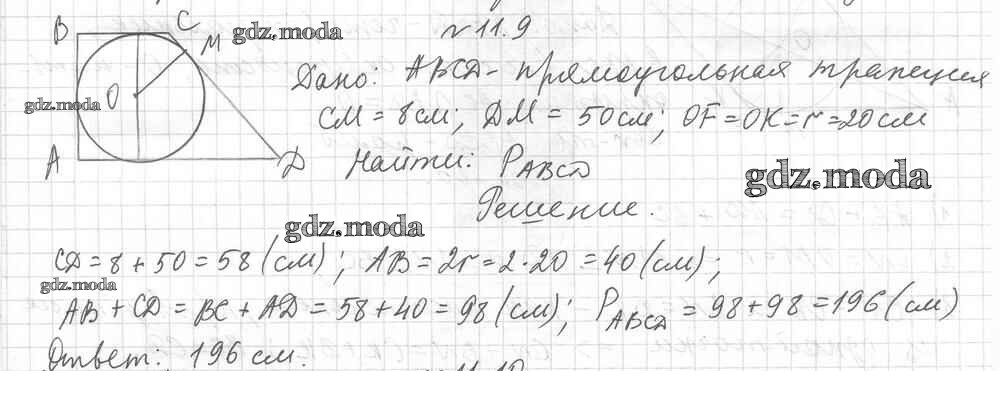 B C M gdz.moda №11.9
Дано: ABCD - прямоугольная трапеция
gdz.moda O
CM = 8 см; DM = 50 см; OF = OK = r = 20 см
A D Найти: P_ABCD
gdz.moda
Решение.
gdz.moda
CD = 8 + 50 = 58 (см); AB = 2r = 2·20 = 40 (см);
gdz.moda
AB + CD = BC + AD = 58 + 40 = 98 (см); P_ABCD = 98 + 98 = 196 (см)
Ответ: 196 см.